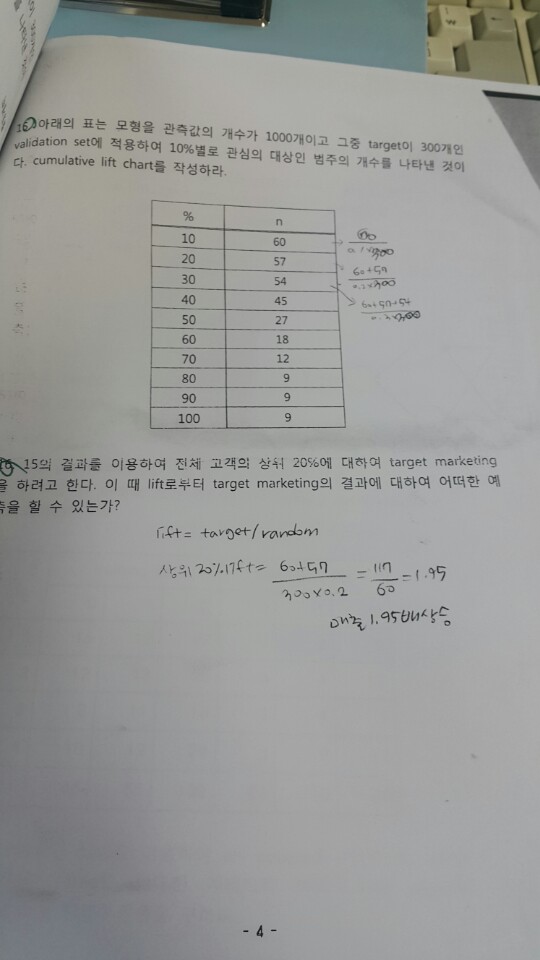 아래의 표는 모형을 관측값의 개수가 1000개이고 그중 target이 300개인
validation set에 적용하여 10%별로 관심의 대상인 범주의 개수를 나타낸 것이
다. cumulative lift chart를 작성하라.
% n
10 60
20 57
30 54
40 45
50 27
60 18
70 12
80 9
90 9
100 9
60
0.1×300
60+57
0.2×300
60+57+54
15의 결과를 이용하여 전체 고객의 상위 20%에 대하여 target marketing
을 하려고 한다. 이 때 lift로부터 target marketing의 결과에 대하여 어떠한 예
측을 할 수 있는가?
lift = target/random
상위 20% lift = 60+57 / 300×0.2 = 117 / 60 = 1.95
매출 1.95배 상승
- 4 -